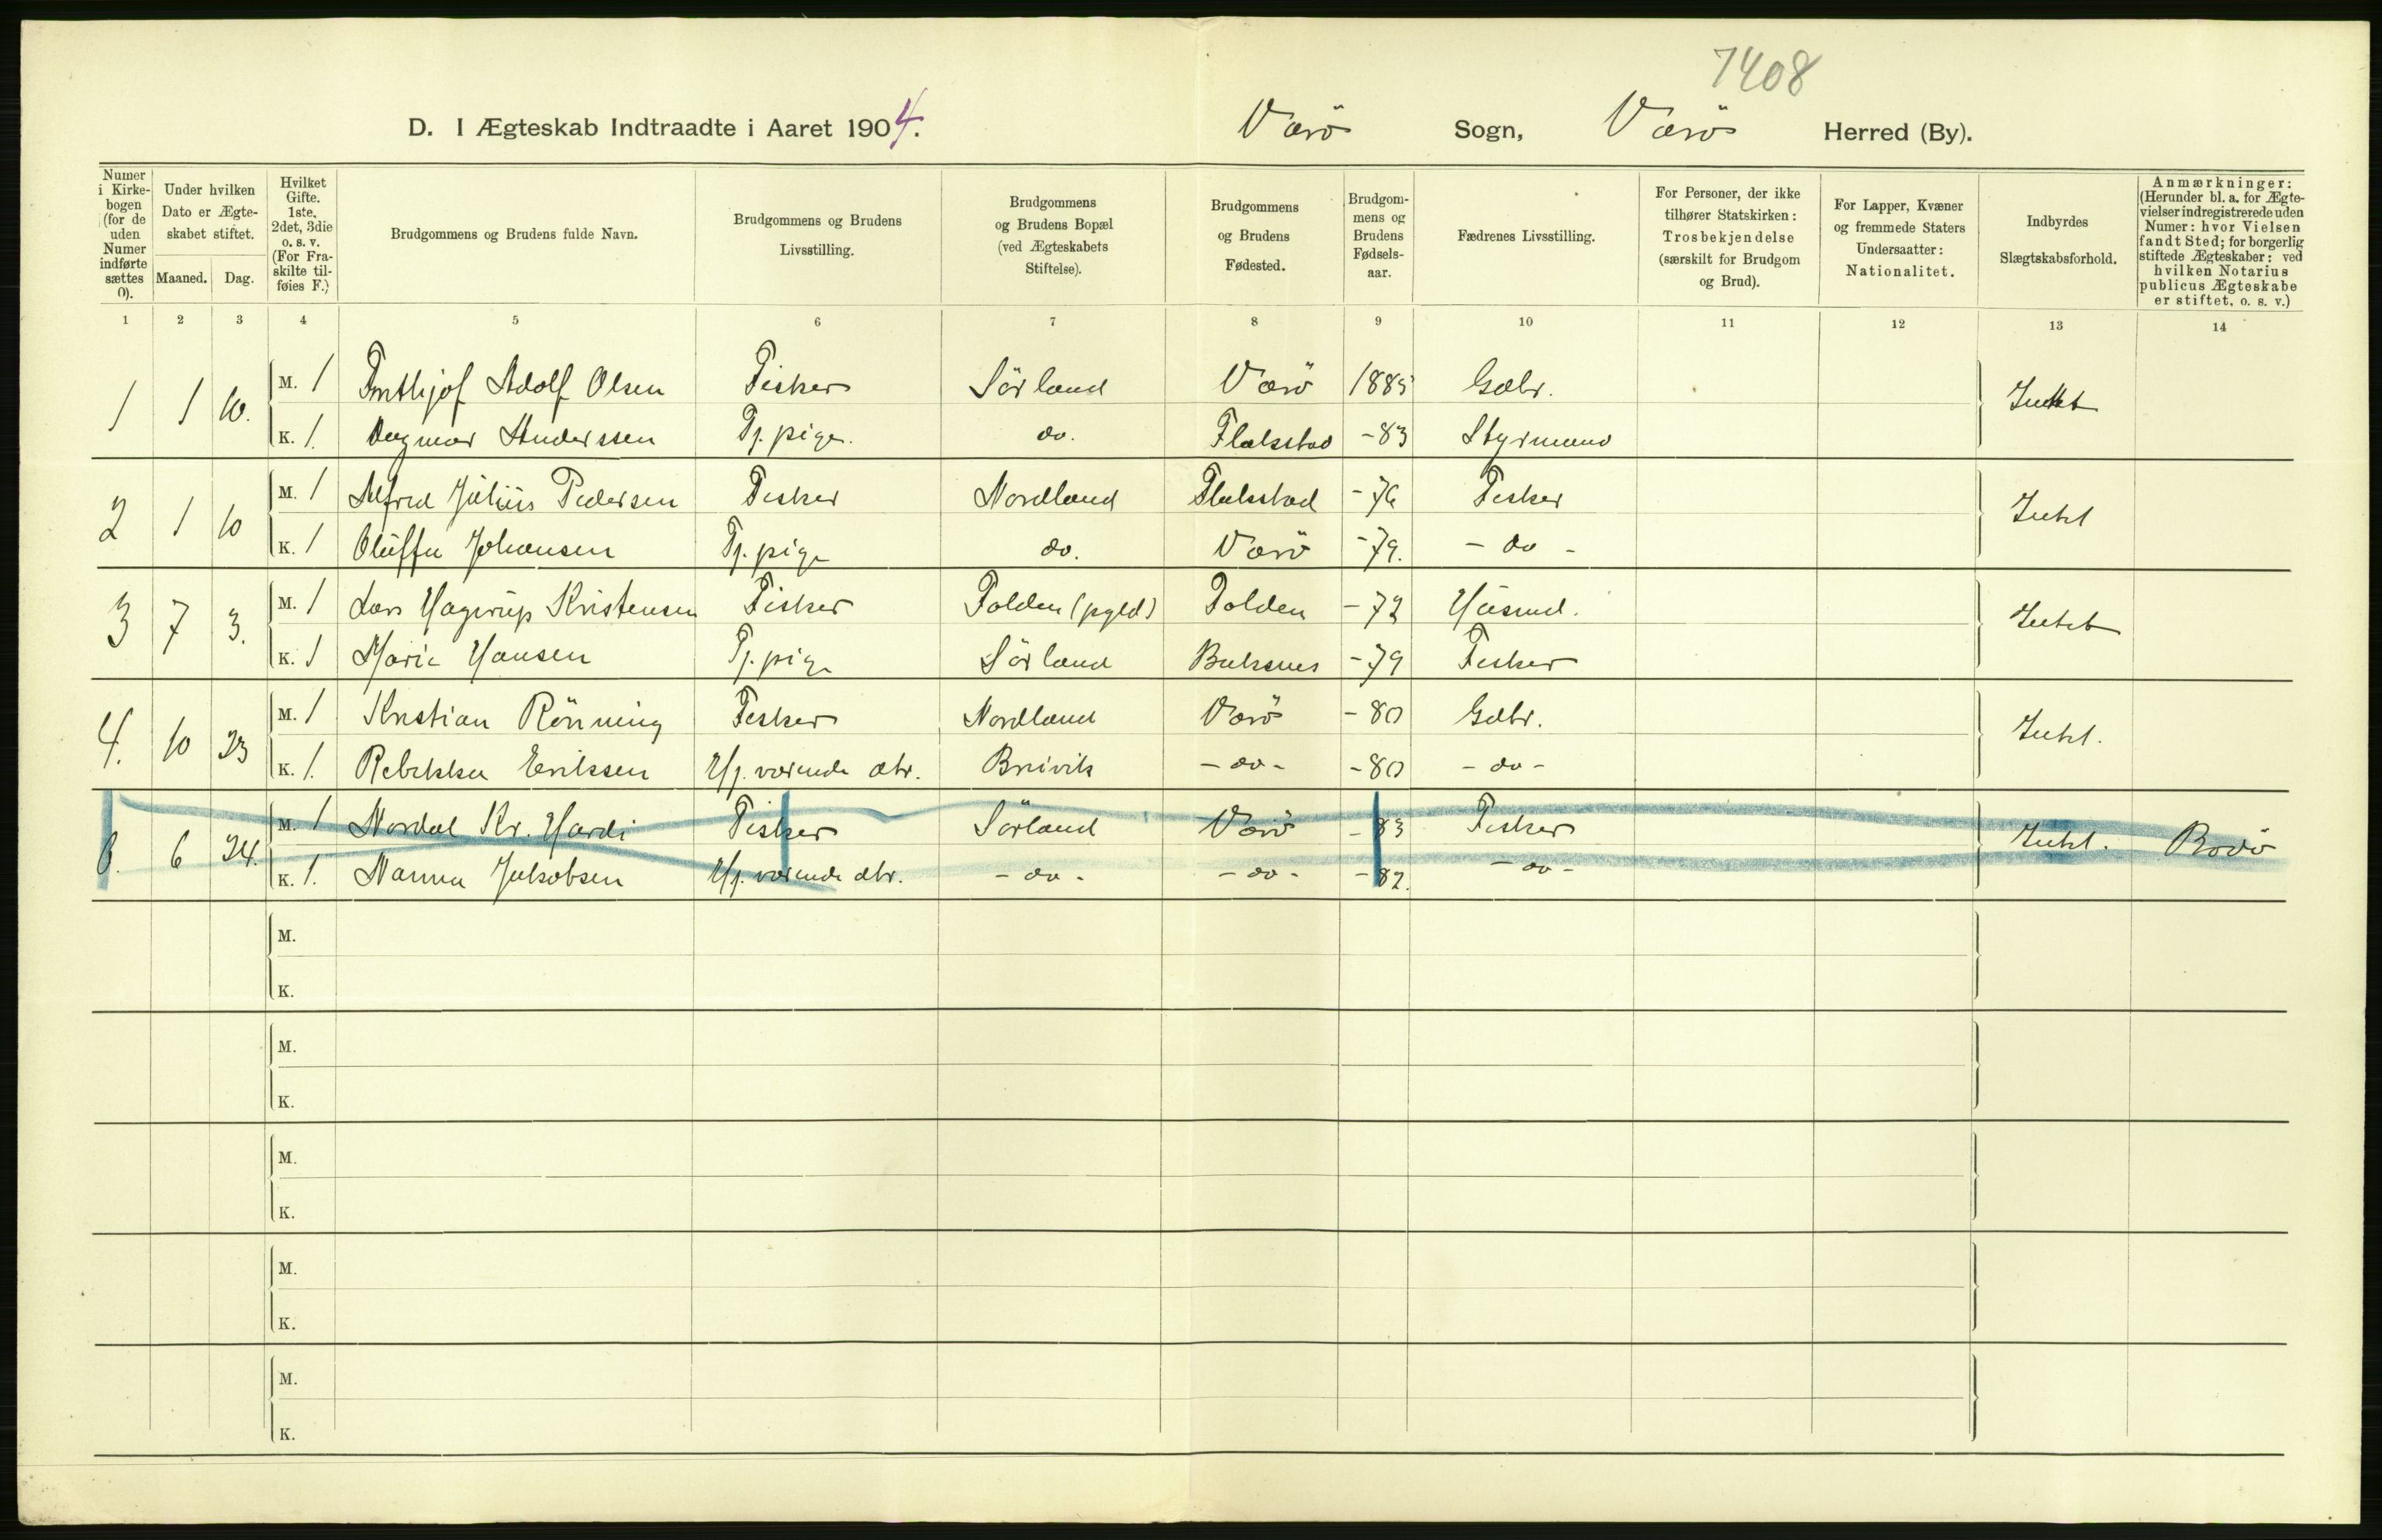 7408
D. I Ægteskab Indtraadte i Aaret 1904. Værö Sogn, Værö Herred (By).
Numer i Kirke-bogen (for de uden Numer indførte sættes 0).
Under hvilken Dato er Ægte-skabet stiftet.
Maaned. Dag.
Hvilket Gifte. 1ste, 2det, 3die o. s. v. (For Fra-skilte til-føies F.)
Brudgommens og Brudens fulde Navn.
Brudgommens og Brudens Livsstilling.
Brudgommens og Brudens Bopæl (ved Ægteskabets Stiftelse).
Brudgommens og Brudens Fødested.
Brudgom-mens og Brudens Fødsels-aar.
Fædrenes Livsstilling.
For Personer, der ikke tilhører Statskirken: Trosbekjendelse (særskilt for Brudgom og Brud).
For Lapper, Kvæner og fremmede Staters Undersaatter: Nationalitet.
Indbyrdes Slægtskabsforhold.
Anmærkninger: (Herunder bl. a. for Ægte-vielser indregistrerede uden Numer: hvor Vielsen fandt Sted; for borgerlig stiftede Ægteskaber: ved hvilken Notarius publicus Ægteskabe er stiftet, o. s. v.)
1 2 3 4 5 6 7 8 9 10 11 12 13 14
1 1 10. M. 1 Frithjof Adolf Olsen Fisker Sörland Værö 1885 Gdbr. Intet
K. 1. Dagmar Anderssen Tj. pige. do. Flakstad -83 Styrmand
2 1 10 M. 1 Alfred Julius Pedersen Fisker Nordland Flakstad -76 Fisker Intet
K. 1 Oluffa Johansen Tj. pige do. Værö -79. - do -
3 7 3. M. 1 Lars Hagerup Kristensen Fisker Folden (pgld) Folden -72 Husmd. Intet
K. 1 Marie Hansen Tj. pige Sörland Buksnes -79 Fisker
4. 10 23 M. 1 Kristian Rönning Fisker Nordland Værö -80 Gdbr. Intet.
K. 1. Rebekka Eriksen Hj. værende dtr. Breivik - do - -80 - do -
0. 6 24. M. 1 Nordal Kr. Hardi Fisker Sörland Værö -83 Fisker Intet. Bodö
K. 1. Nanna Jakobsen Hj. værende dtr. - do - - do - -82. - do -
M.
K.
M.
K.
M.
K.
M.
K.
M.
K.